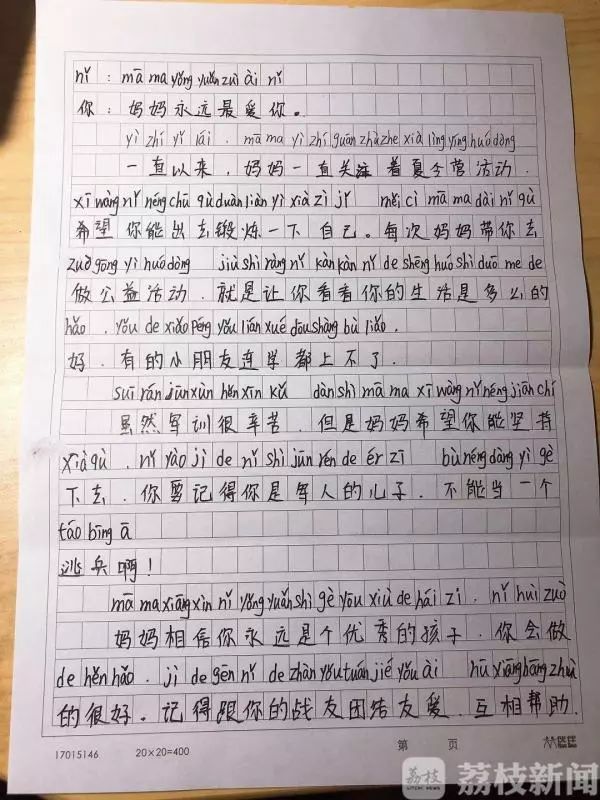 nǐ：mā ma yǒng yuǎn zuì ài nǐ
你：妈妈永远最爱你。
yì zhí yǐ lái，mā ma yì zhí guān zhù zhe xià lìng yíng huó dòng
一直以来，妈妈一直关注着夏令营活动，
xī wàng nǐ néng chū qù duàn liàn yì xià zì jǐ měi cì mā ma dài nǐ qù
希望你能出去锻炼一下自己。每次妈妈带你去
zuò gōng yì huó dòng jiù shì ràng nǐ kàn kàn nǐ de shēng huó shì duō me de
做公益活动，就是让你看看你的生活是多么的
hǎo，yǒu de xiǎo péng yǒu lián xué dōu shàng bù liǎo，
好，有的小朋友连学都上不了，
suī rán jūn xùn hěn xīn kǔ dàn shì mā ma xī wàng nǐ néng jiān chí
虽然军训很辛苦，但是妈妈希望你能坚持
xià qù，nǐ yào jì de nǐ shì jūn rén de ér zi bù néng dāng yí gè
下去，你要记得你是军人的儿子，不能当一个
táo bīng ā
逃兵啊！
mā ma xiāng xìn nǐ yǒng yuǎn shì gè yōu xiù de hái zi，nǐ huì zuò
妈妈相信你永远是个优秀的孩子，你会做
de hěn hǎo，jì de gēn nǐ de zhàn yǒu tuán jié yǒu ài hù xiāng bāng zhù
的很好。记得跟你的战友团结友爱，互相帮助，
17015146 20×20=400 第 页 伙伴
荔枝 LITCHI NEWS 荔枝新闻